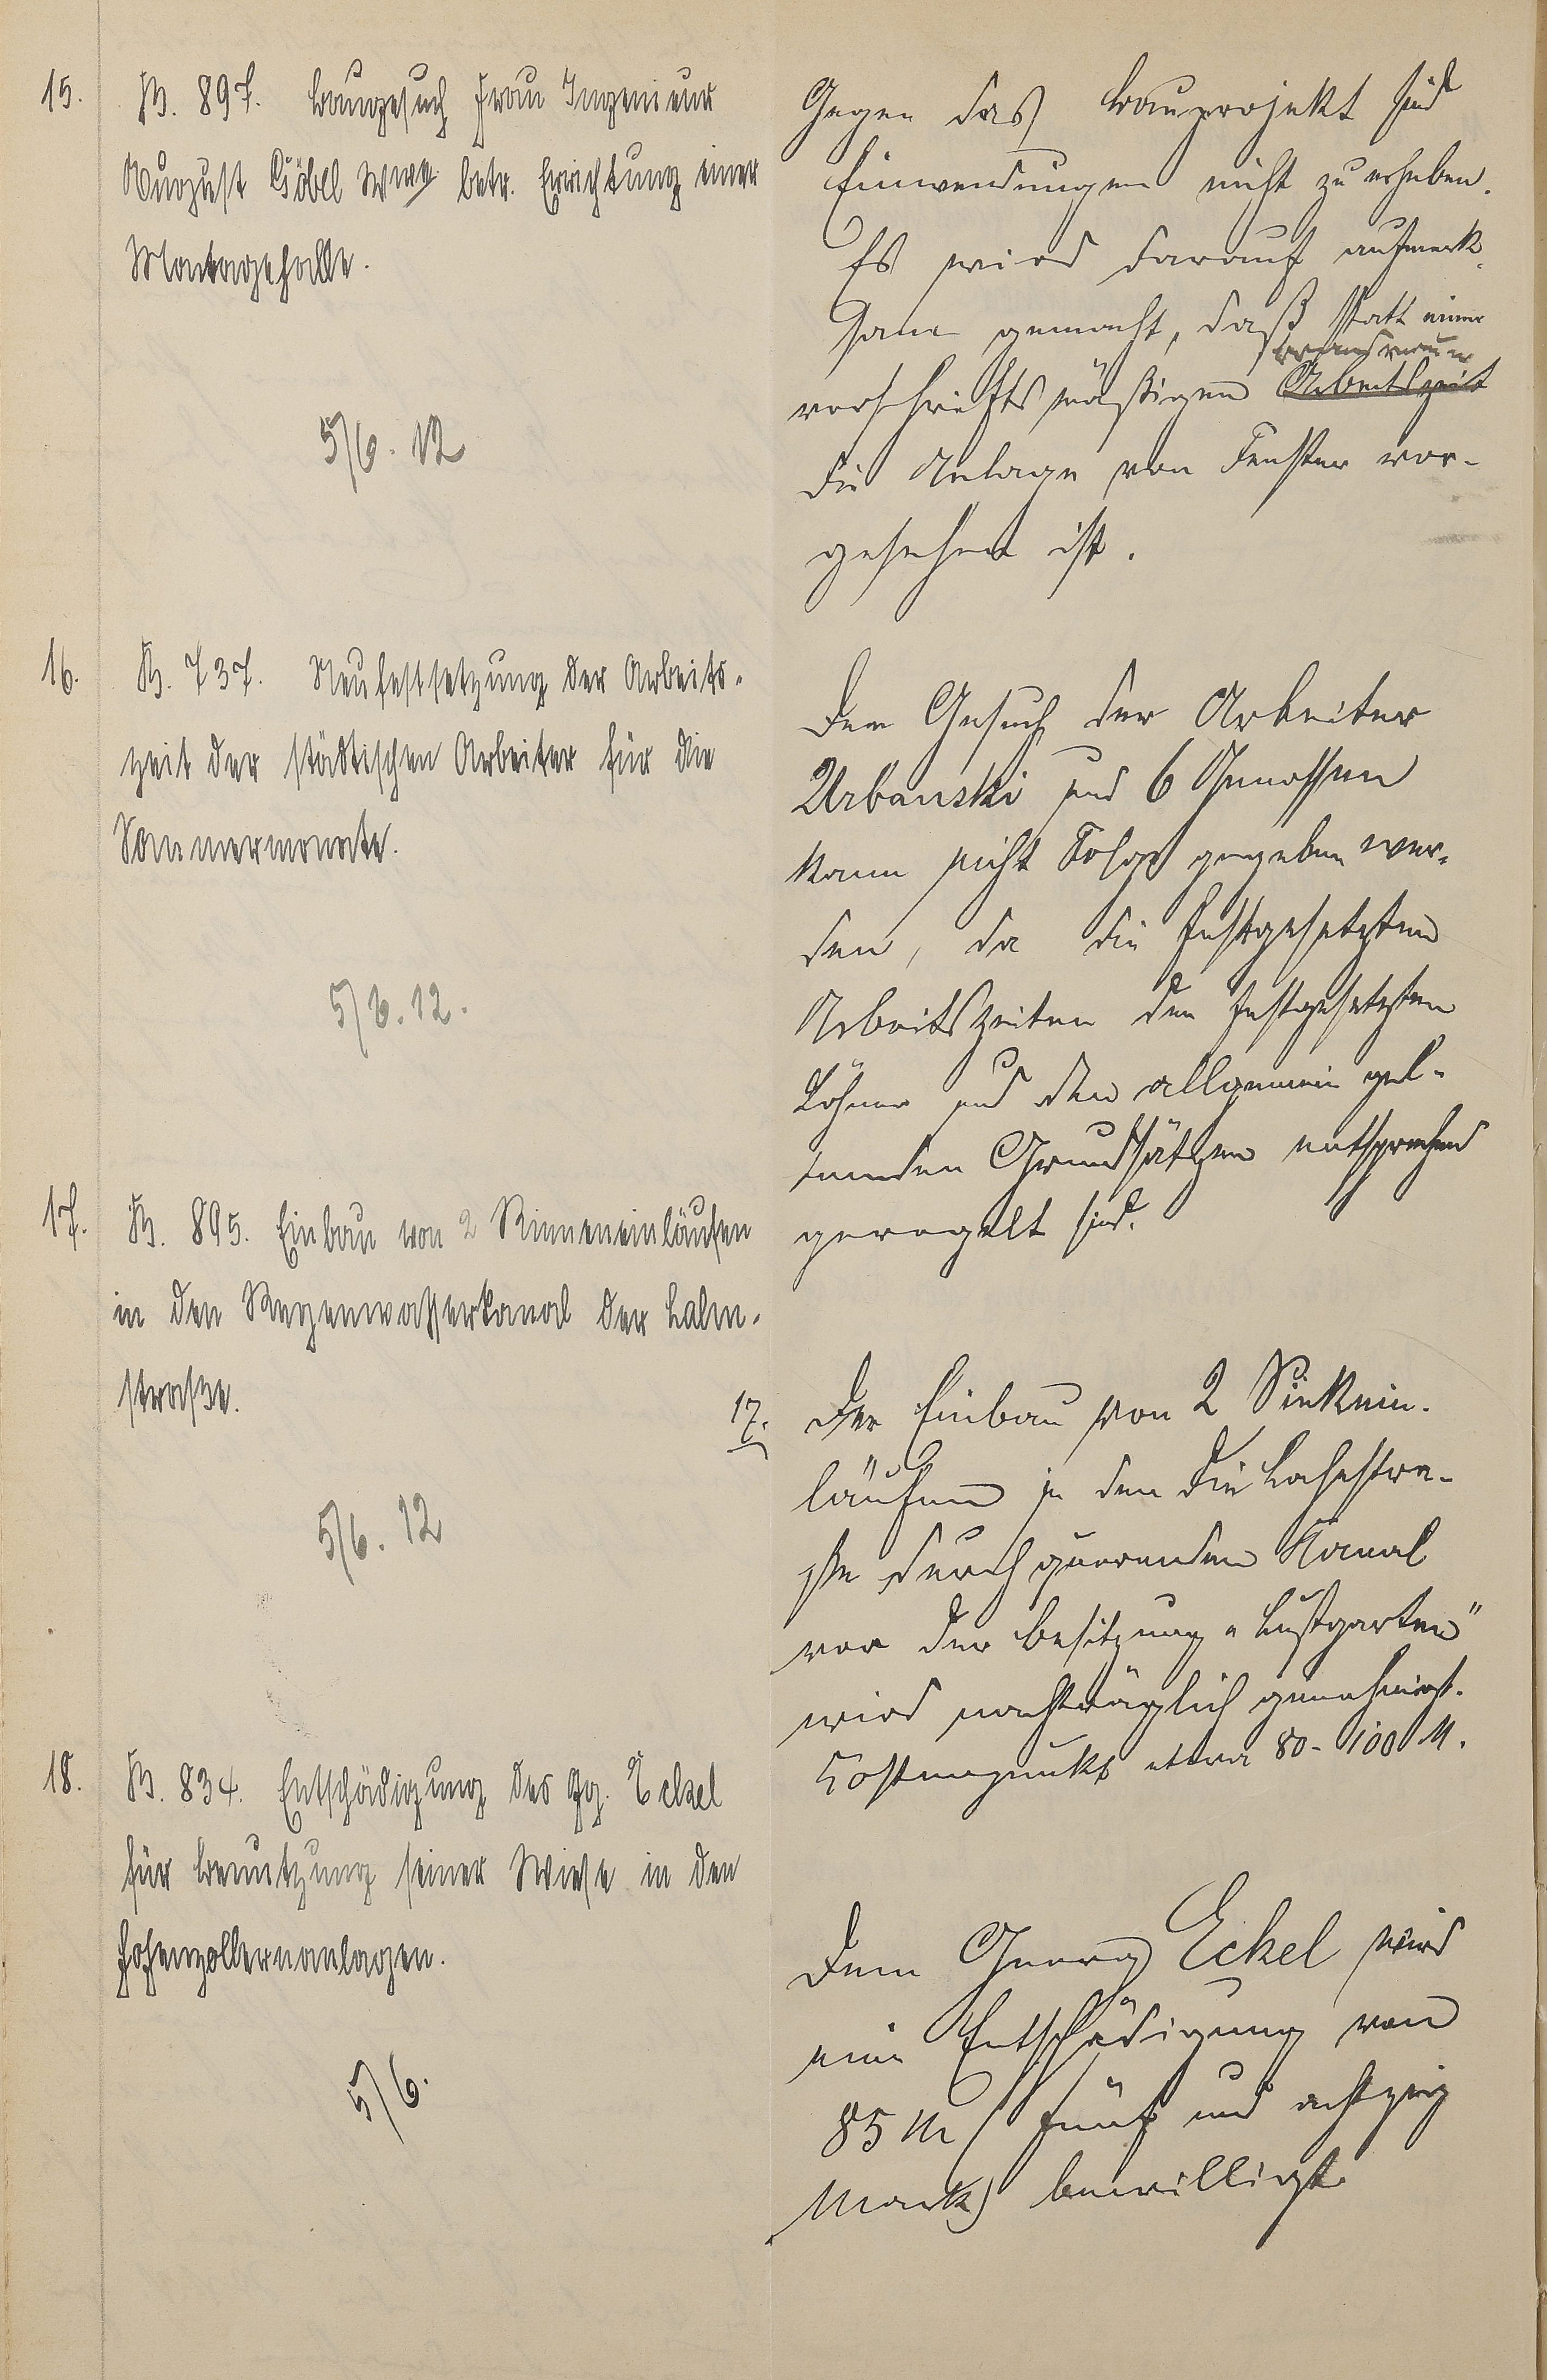 15.
B. 897. Baugesuch Frau Ingenieur
August Göbel Wwe. betr. Errichtung einer
Montagehalle.
5/6. 12
Gegen das Bauprojekt sind
Einwendungen nicht zu erheben.
Es wird darauf aufmerk-
sam gemacht, daß statt einer
Brandmauer
vorschriftsmäßigen Arbeitszeit
die Anlage von Fenster vor-
gesehen ist.
16.
B. 737. Neufestsetzung der Arbeits-
zeit der städtischen Arbeiter für die
Sommermonate.
5/6. 12.
Dem Gesuch der Arbeiter
Urbanski und 6 Genossen
kann nicht Folge gegeben wer-
den, da die festgesetzten
Arbeitszeiten den festgesetzten
Löhnen und den allgemein gel-
tenden Grundsätzen entsprechend
geregelt sind.
17.
B. 895. Einbau von 2 Rinneneinläufen
in den Regenwasserkanal der Lahn-
straße.
5/6. 12
17. Der Einbau von 2 Sinkein-
läufen in den die
ße durchquerenden Kanal
vor der Besitzung "Lustgarten"
wird nachträglich genehmigt.
Kostenpunkt etwa 80-100 M.
18.
B. 834. Entschädigung des Gg. Eckel
für Benutzung seiner Wiese in den
Hohenzollernanlagen.
5/6.
Dem Georg Eckel wird
eine Entschädigung von
85 M (fünf und achtzig
Mark) bewilligt